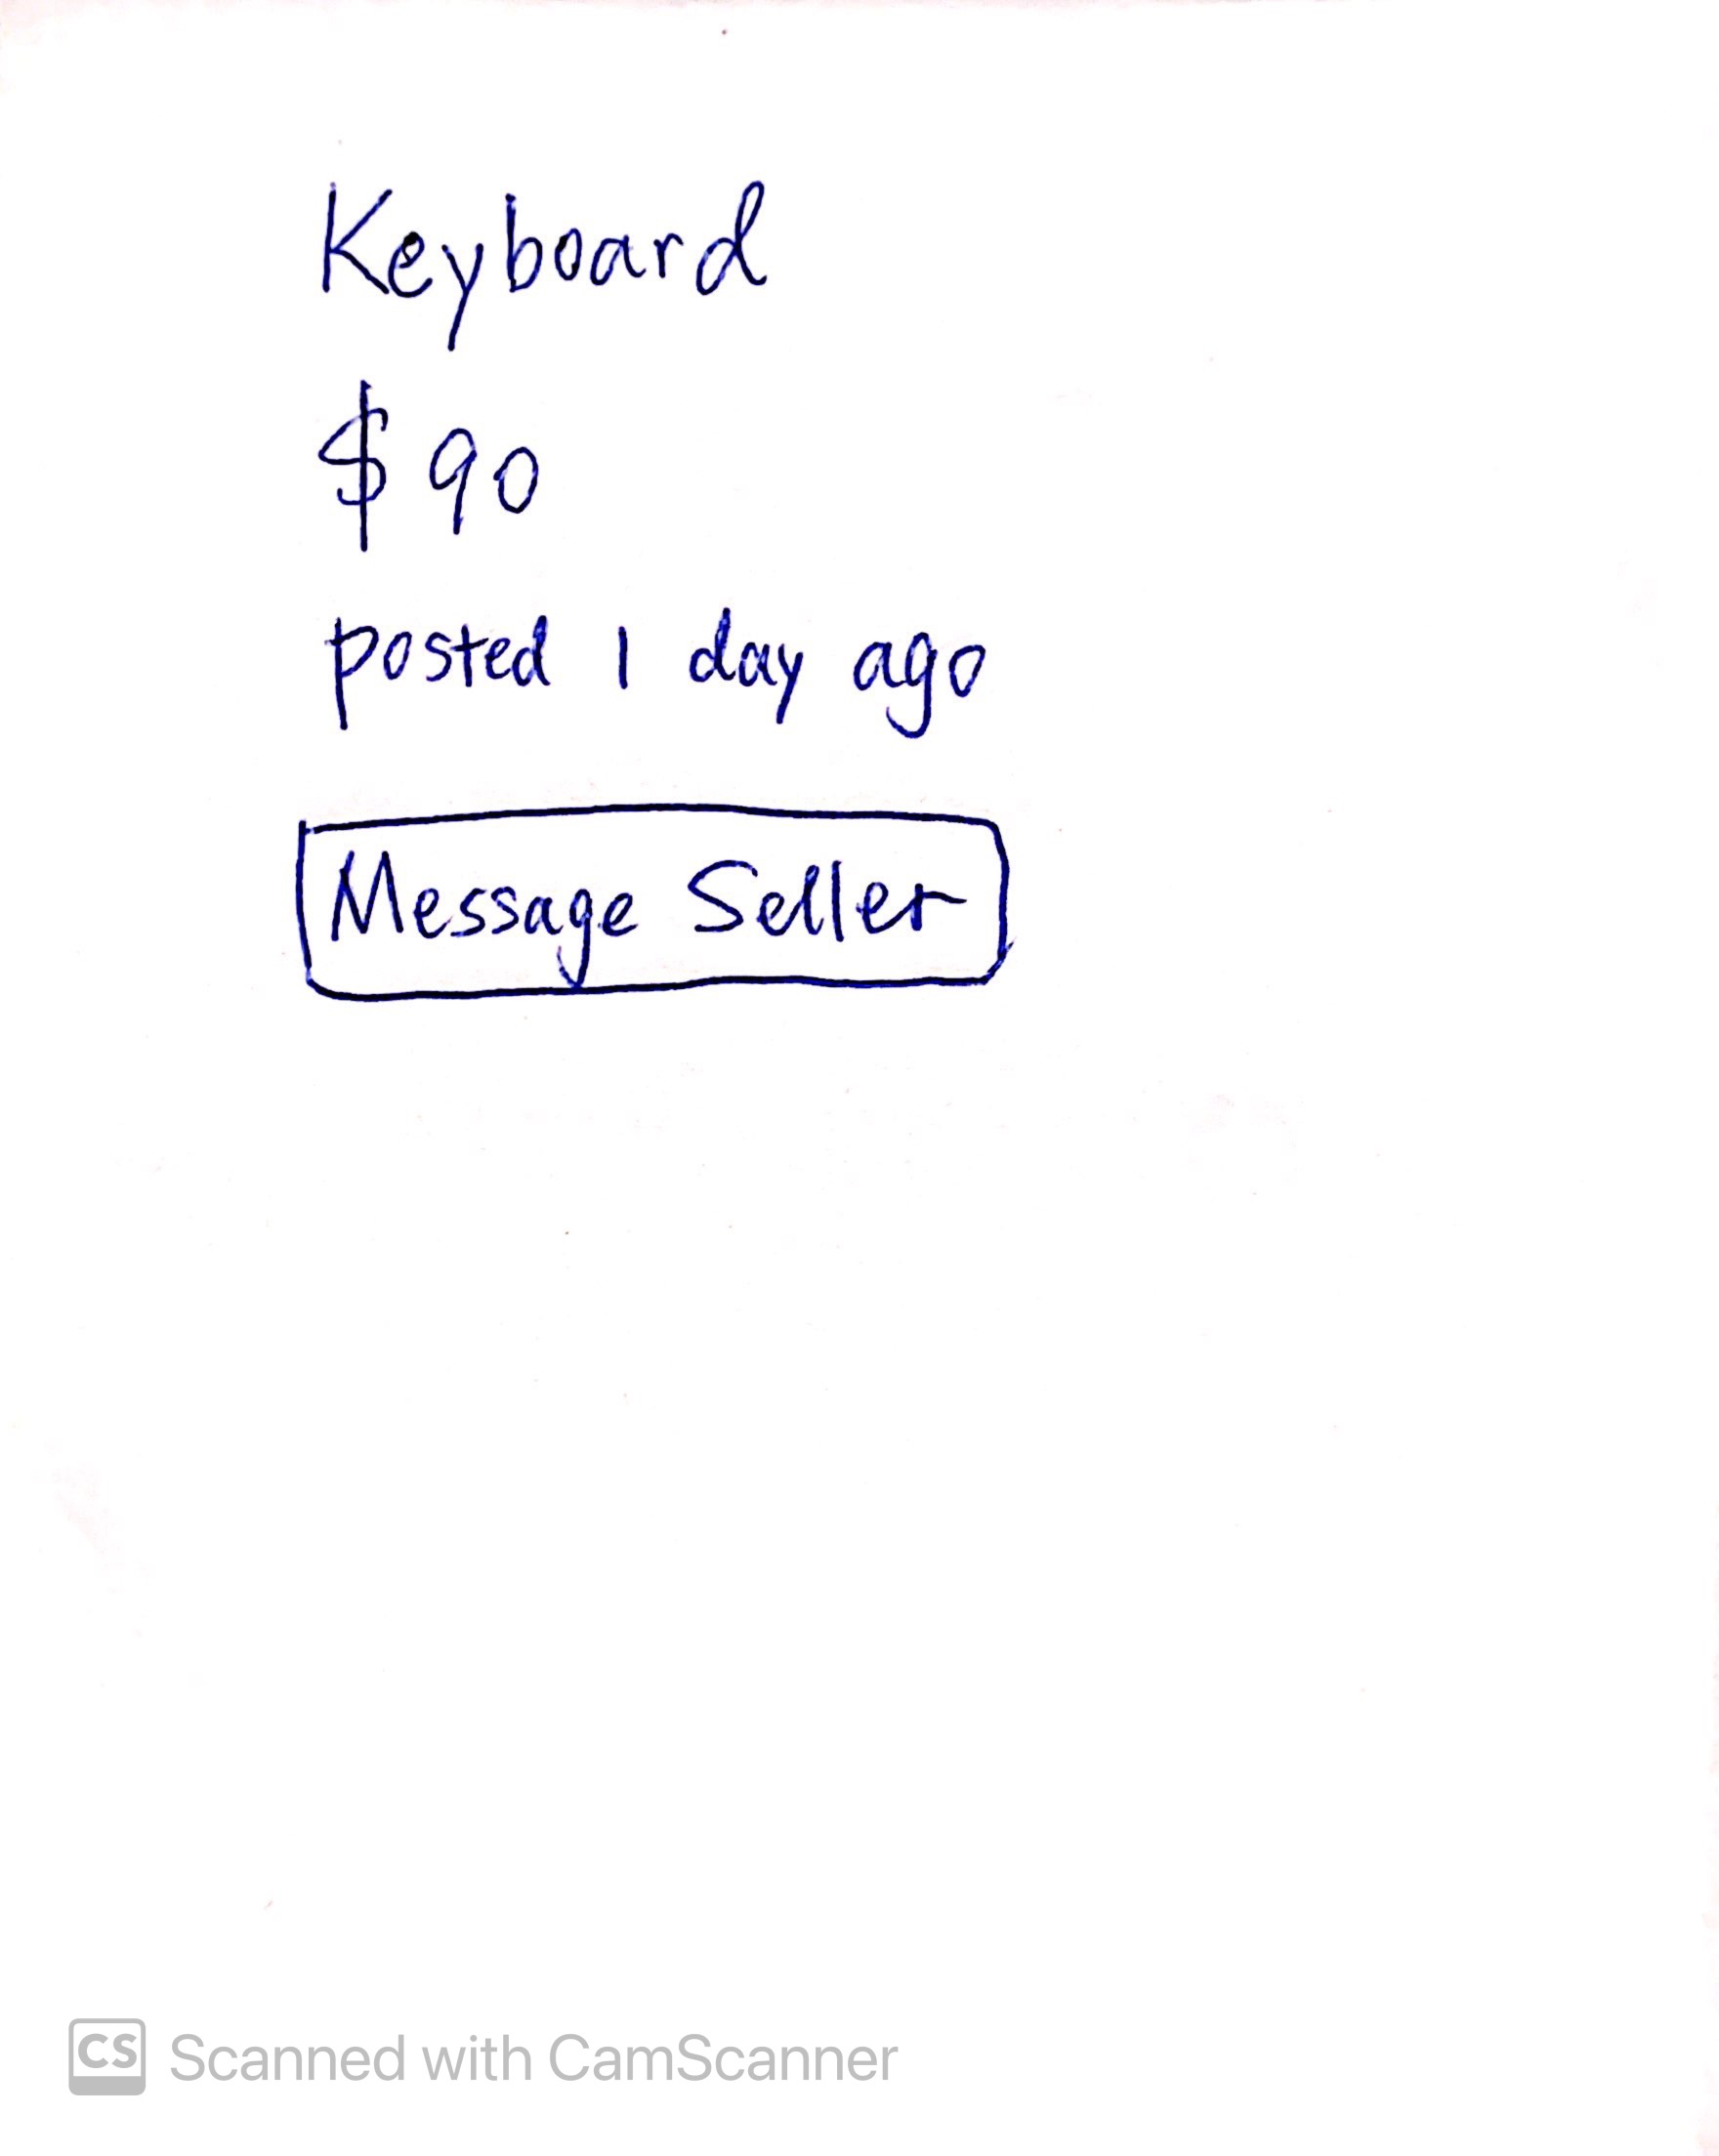 Keyboard
$ 90
posted 1 day ago
Message Seller
CS Scanned with CamScanner